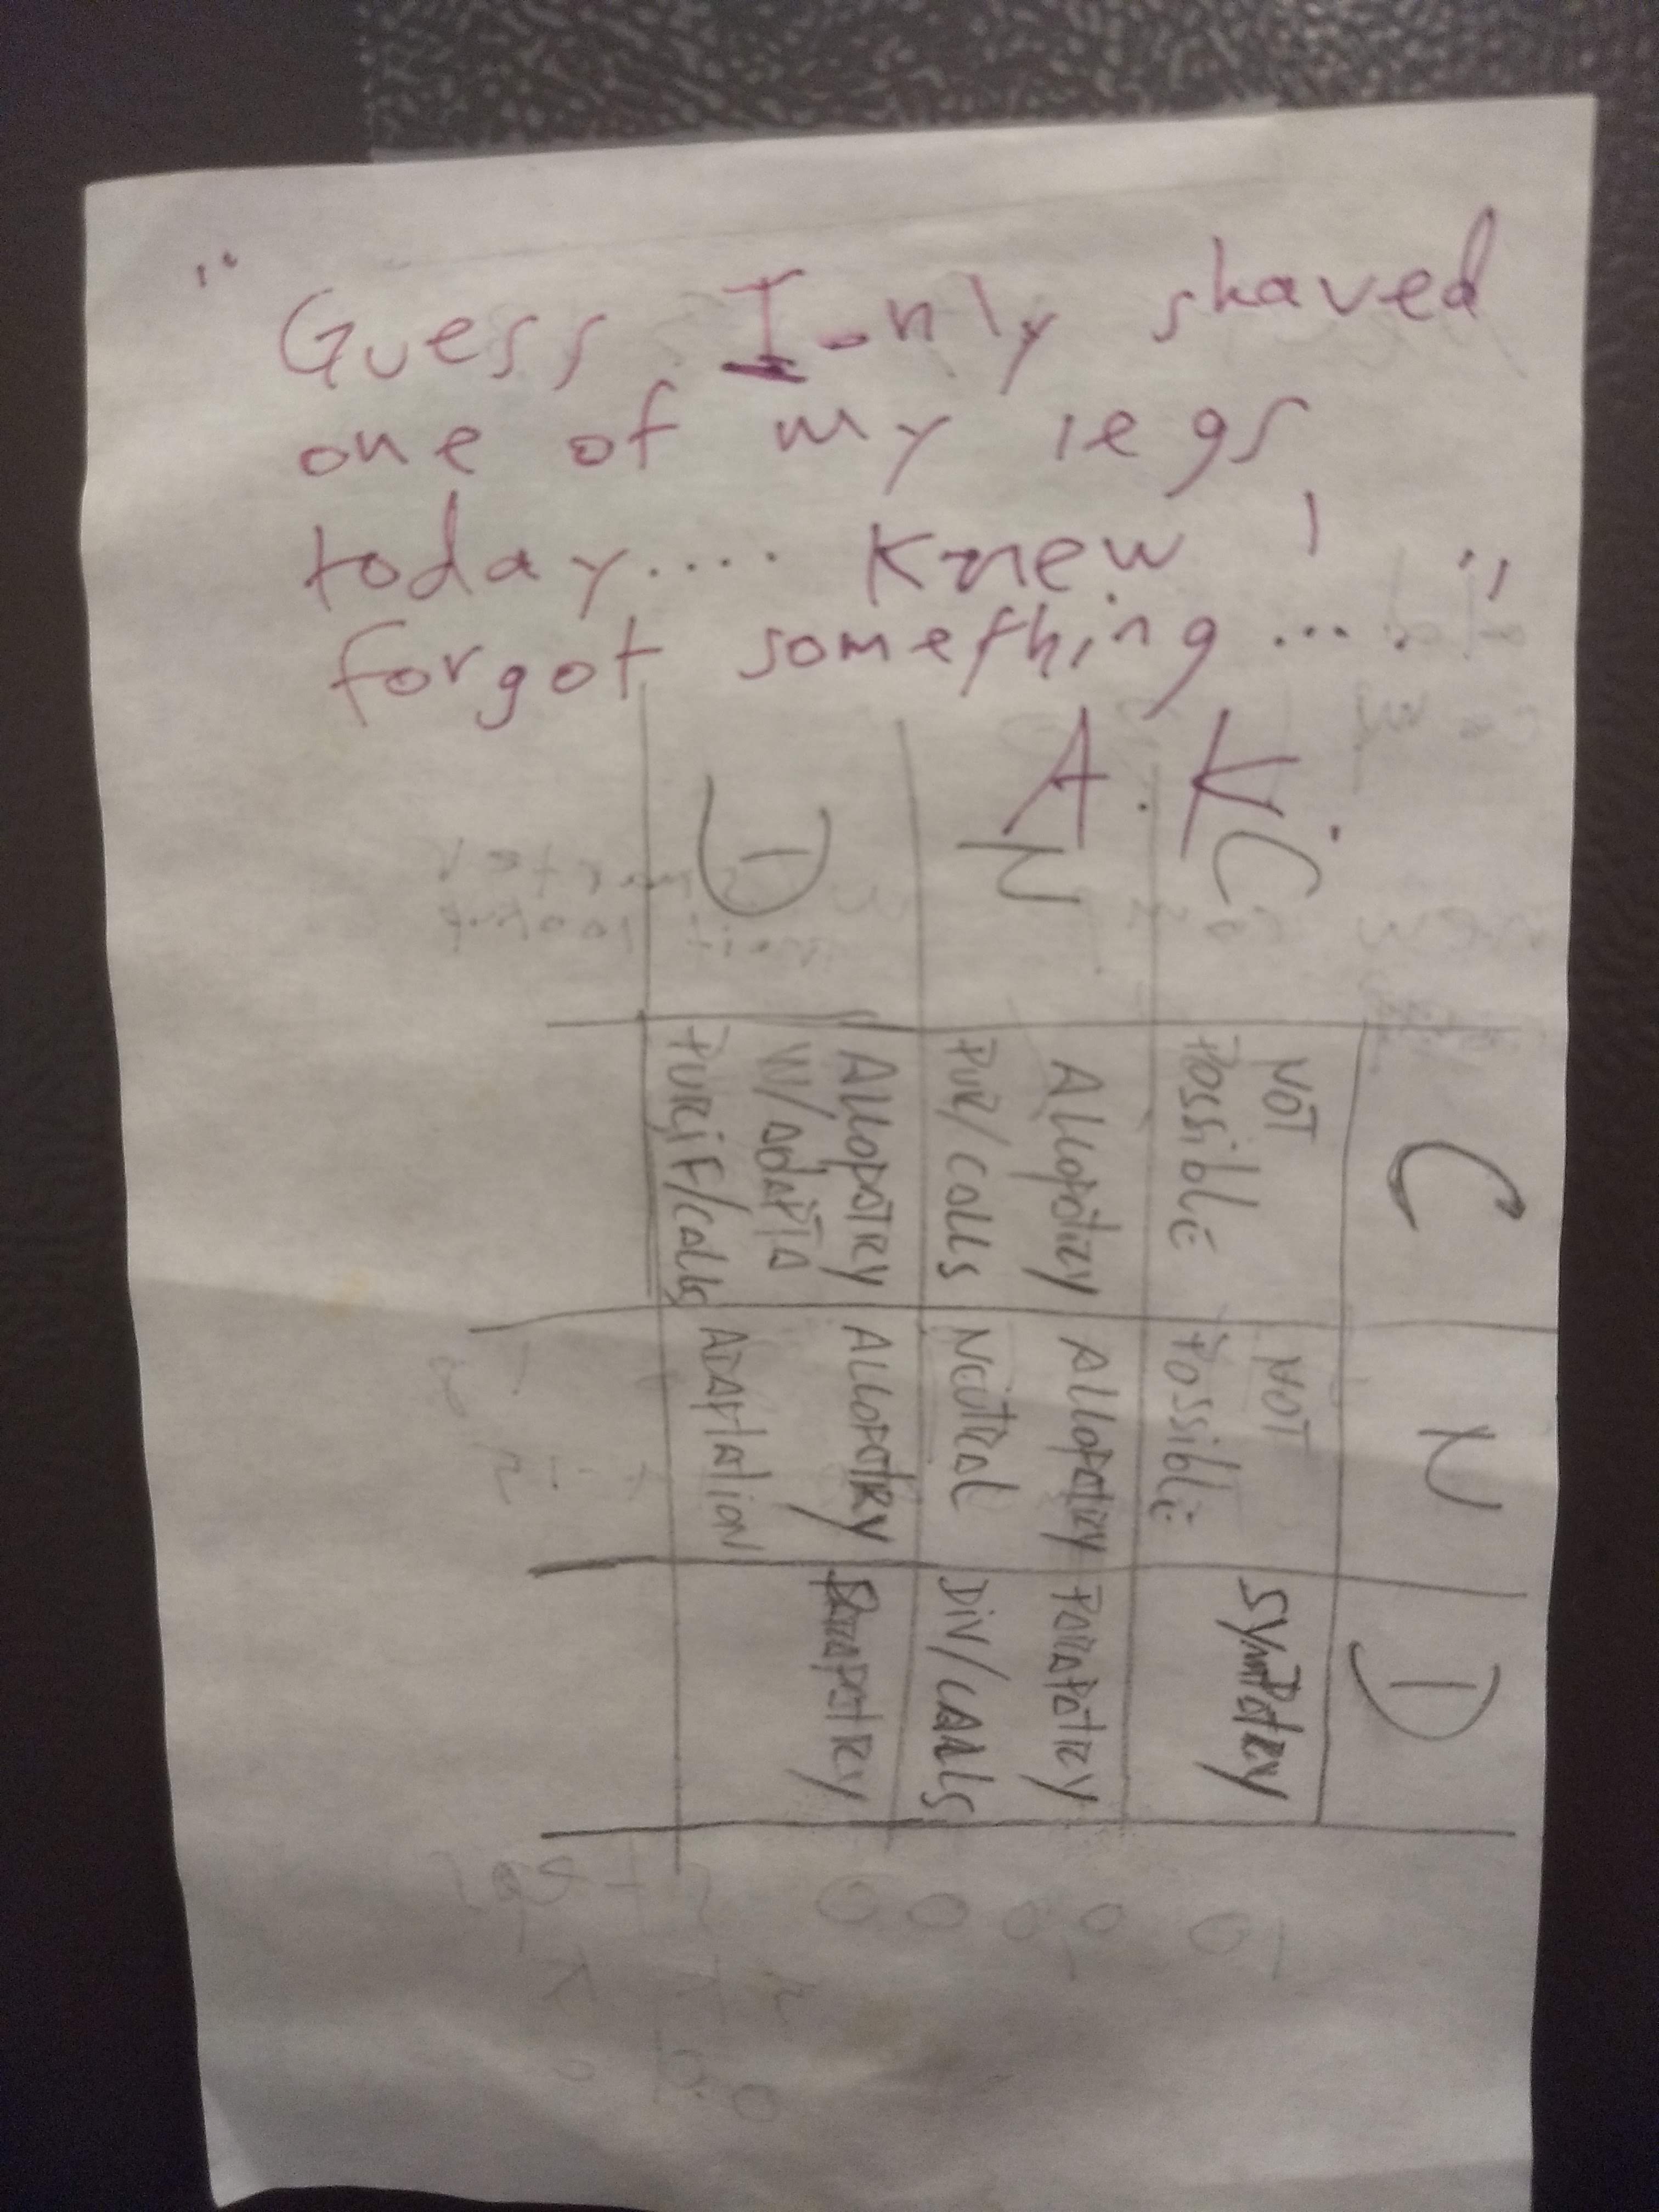 "Guess I only shaved
one of my legs
today.... Knew I
forgot something...."
A.K.
C N D
C
NOT
POSSIBLE
NOT
POSSIBLE
SYMPATRY
N
ALLOPATRY
PUR/CALLS
ALLOPATRY
NEUTRAL
PARAPATRY
DIV/CALLS
D
ALLOPATRY
W/ADAPTA
PURIF/CALLS
ALLOPATRY
ADAPTATION
PARAPATRY